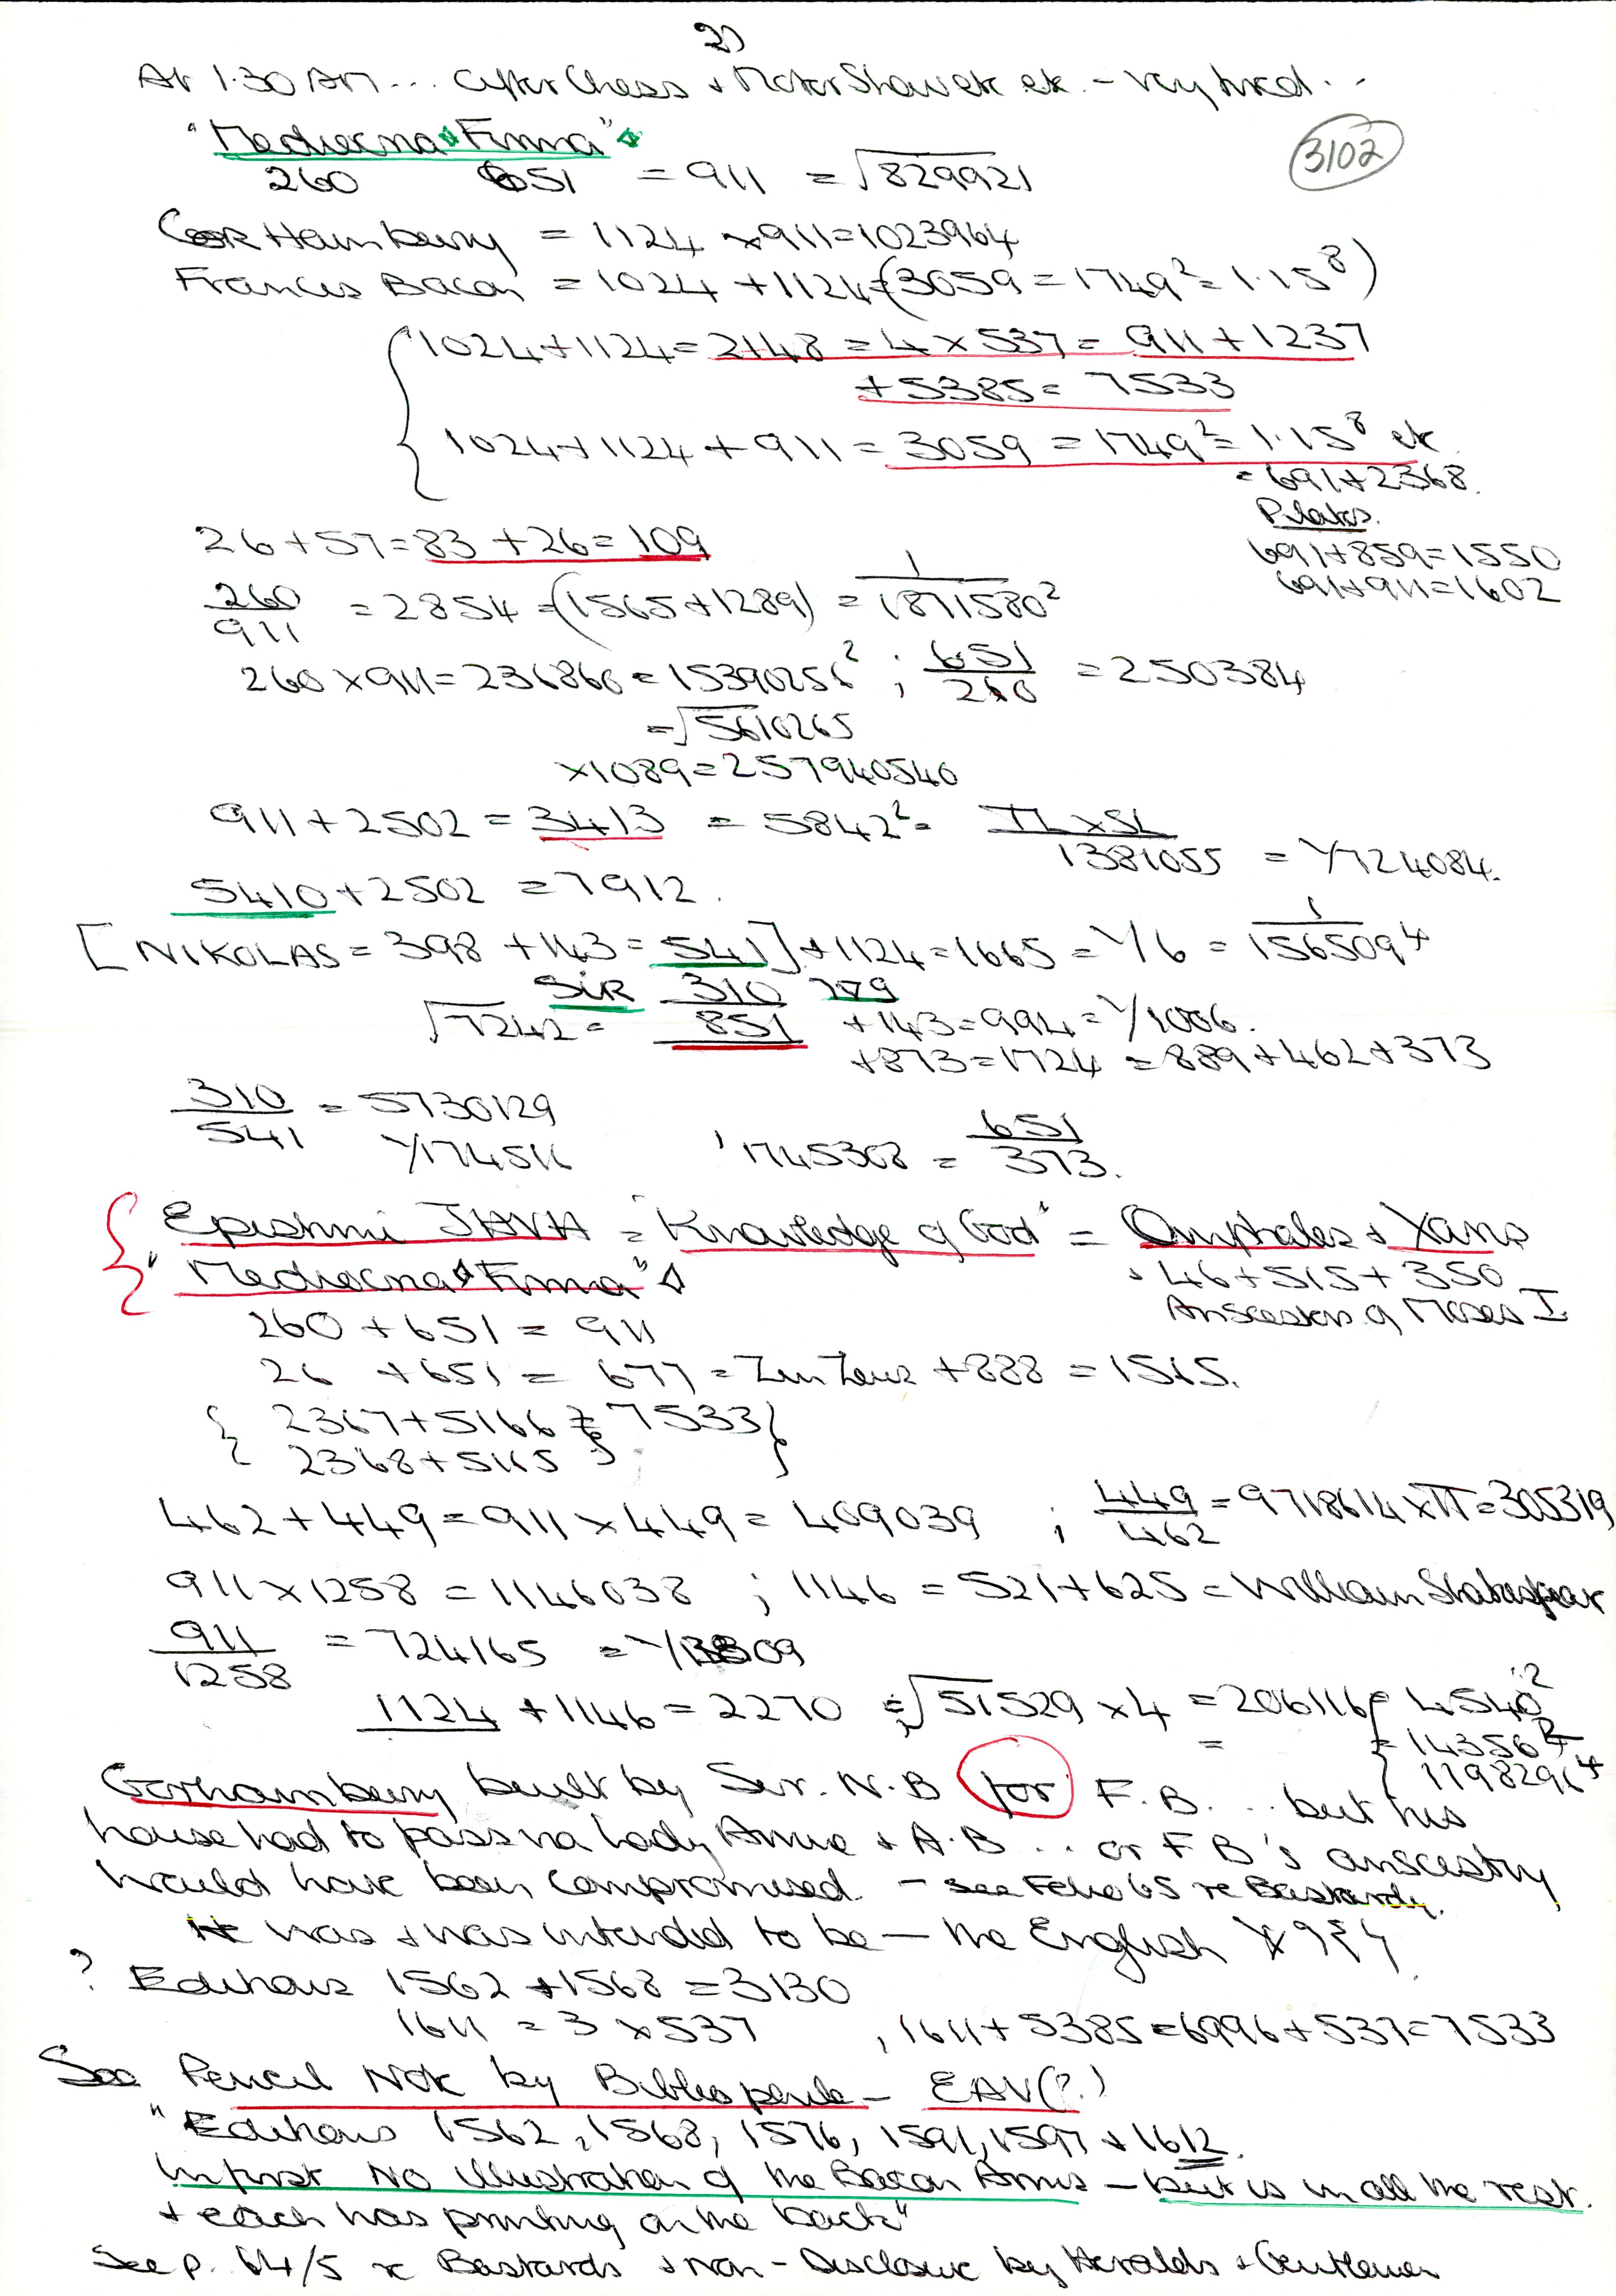 2)
At 1.30 AM... after Chess + Motor Show etc etc. - Very tired...
"Mediocria Firma"
3102
260 651 = 911 = √829921
Gorhambury = 1124 × 911 = 1023964
Frances Bacon = 1024 + 1124 + (3059 = 1749² = 1.15⁸)
1024 + 1124 = 2148 = 4 × 537 = 911 + 1237
+ 5385 = 7533
1024 + 1124 + 911 = 3059 = 1749² = 1.15⁸ etc
= 691 + 2368.
26 + 57 = 83 + 26 = 109
691 + 859 = 1550
691 + 911 = 1602
260/911 = 2854 = (1565 + 1289) = 1/1871580²
260 × 911 = 236860 = 15390256² ; 651/260 = 250384
= √5610265
× 1089 = 257940540
911 + 2502 = 3413 = 5842² = /1381055 = 1/724084.
5410 + 2502 = 7912.
[NIKOLAS = 398 + 143 = 541] + 1124 = 1665 = 1/6 = 1/1565094
SIR 310 229
√7242 = 851 + 143 = 994 = 1/1006.
+ 873 = 1724 = 889 + 462 + 373
310/541 = 5730129
1/174516 , 1745308 = 651/373.
Epistimi JAVA = "Knowledge of God" = Omphalos + Xano
"Mediocria Firma" + 46 + 515 + 350
Anscestors of Moses I
260 + 651 = 911
26 + 651 = 677 = Zen Zeus + 888 = 1565.
{2367 + 5166 = 7533}
{2368 + 5165}
462 + 449 = 911 × 449 = 409039 ; 449/462 = 9718614 × π = 305319
911 × 1258 = 1146038 ; 1146 = 521 + 625 = William Shakespear
911/1258 = 724165 = 1/13809
1124 + 1146 = 2270 = √51529 × 4 = 206116 = 4540²
= 14356
1198296⁴
Gorhambury built by Sir. N.B for F.B. .. but his
house had to pass via Lady Anne + A.B .. or F B's anscestry
would have been compromised. - see Folio 65 re Bastardy.
He was + was intended to be - the English
? Editions 1562 + 1568 = 3130
1611 = 3 × 537 , 1611 + 5385 = 6996 + 537 = 7533
See Pencil Note by Bibliopole - EAV(?)
"Editions 1562, 1568, 1576, 1591, 1597 + 1612.
In first No illustration of the Bacon Arms - but is in all the rest.
+ each has printing on the back"
See p. 64/5 re Bastards + Non-Disclosure by Heralds + Gentlemen